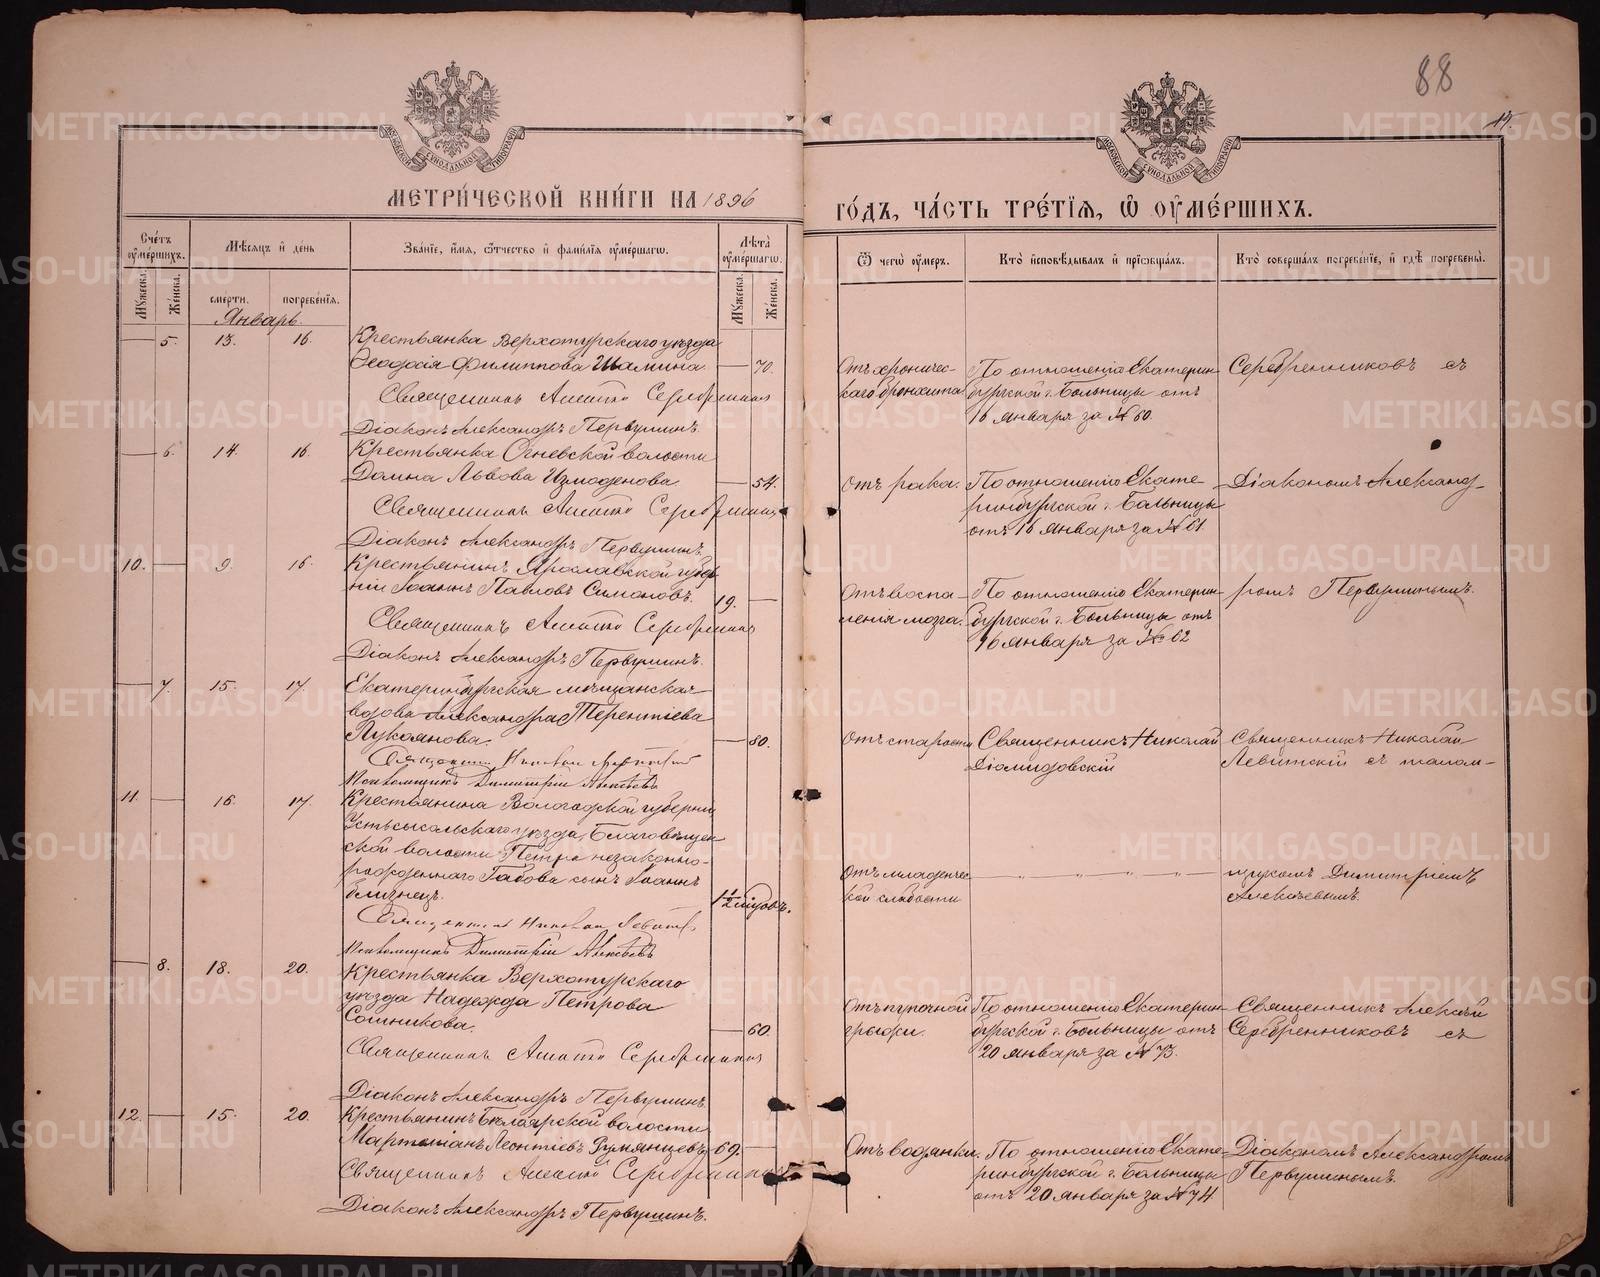 88
17.
МОСКОВСКОЙ СѴНОДАЛЬНОЙ ТИПОГРАФІИ
МОСКОВСКОЙ СѴНОДАЛЬНОЙ ТИПОГРАФІИ
МЕТРИ́ЧЕСКОЙ КНИ́ГИ НА 1896
ГО́ДЪ, ЧА́СТЬ ТРЕ́ТІѦ, Ѡ ОУМЕ́РШИХЪ.
Сче́тъ оумершихъ.
Мѣсяцъ и день
Зва́нїе, и́мѧ, ѻ҆́тчество и фами́лїѧ оуме́ршагѡ.
Лѣ́та оуме́ршагѡ.
Мужеска.
Женска.
сме́рти.
погребе́нїѧ.
Мужеска.
Женска.
Ѿ чегѡ̀ оу́меръ.
Кто̀ и҆сповѣ́дывалъ и прїѡбща́лъ.
Кто̀ соверша́лъ погребе́нїе, и гдѣ̀ погребены̀.
Январь.
5. 13. 16. Крестьянка Верхотурскаго уѣзда
Ѳеодосія Филиппова Шамина 70.
Священникъ Алексѣй Серебренниковъ
Діаконъ Александръ Первушинъ.
Отъ хроничес-
каго бронхита
По отношенію Екатерин-
бургской г. Больницы отъ
16 января за № 60.
Серебренниковъ съ
6. 14. 16. Крестьянка Огневской волости
Домна Львова Измоденова 54.
Священникъ Алексѣй Серебренниковъ
Діаконъ Александръ Первушинъ.
Отъ рака.
По отношенію Екате-
ринбургской г. Больницы
отъ 16 января за № 61
Діакономъ Александ-
10. 9. 16. Крестьянинъ Ярославской губер-
ніи Іоаннъ Павловъ Симановъ. 19.
Священникъ Алексѣй Серебренниковъ
Діаконъ Александръ Первушинъ.
Отъ воспа-
ленія мозга.
По отношенію Екатерин-
бургской г. Больницы отъ
16 января за № 62
ромъ Первушинымъ.
7. 15. 17. Екатеринбургская мѣщанская
вдова Александра Терентіева
Лукоянова. 80.
Священникъ Николай Левитскій
Псаломщикъ Димитрій Алексѣевъ
Отъ старости
Священникъ Николай
Діомидовскій
Священникъ Николай
Левитскій съ псалом-
11. 16. 17. Крестьянина Вологодской губерніи
Устьсысольскаго уѣзда, Благовѣщен
ской волости Петра незаконно-
рожденнаго Габова сынъ Іоаннъ
близнецъ. 1 1/2 мѣсяцовъ.
Священникъ Николай Левитскій
Псаломщикъ Димитрій Алексѣевъ
Отъ младенчес-
кой слабости
щикомъ Димитріемъ
Алексѣевымъ.
8. 18. 20. Крестьянка Верхотурскаго
уѣзда Надежда Петрова
Сотникова. 60
Священникъ Алексѣй Серебренниковъ
Діаконъ Александръ Первушинъ.
Отъ пупочной
грыжи.
По отношенію Екатерин-
бургской г. Больницы отъ
20 января за № 73.
Священникъ Алексѣй
Серебренниковъ съ
12. 15. 20. Крестьянинъ Беклярской волости
Мартиніанъ Леонтіевъ Румянцевъ 69.
Священникъ Алексѣй Серебренниковъ
Діаконъ Александръ Первушинъ.
Отъ водянки.
По отношенію Екате-
ринбургской г. Больницы
отъ 20 января за № 74
Діакономъ Александромъ
Первушинымъ.
METRIKI.GASO-URAL.RU